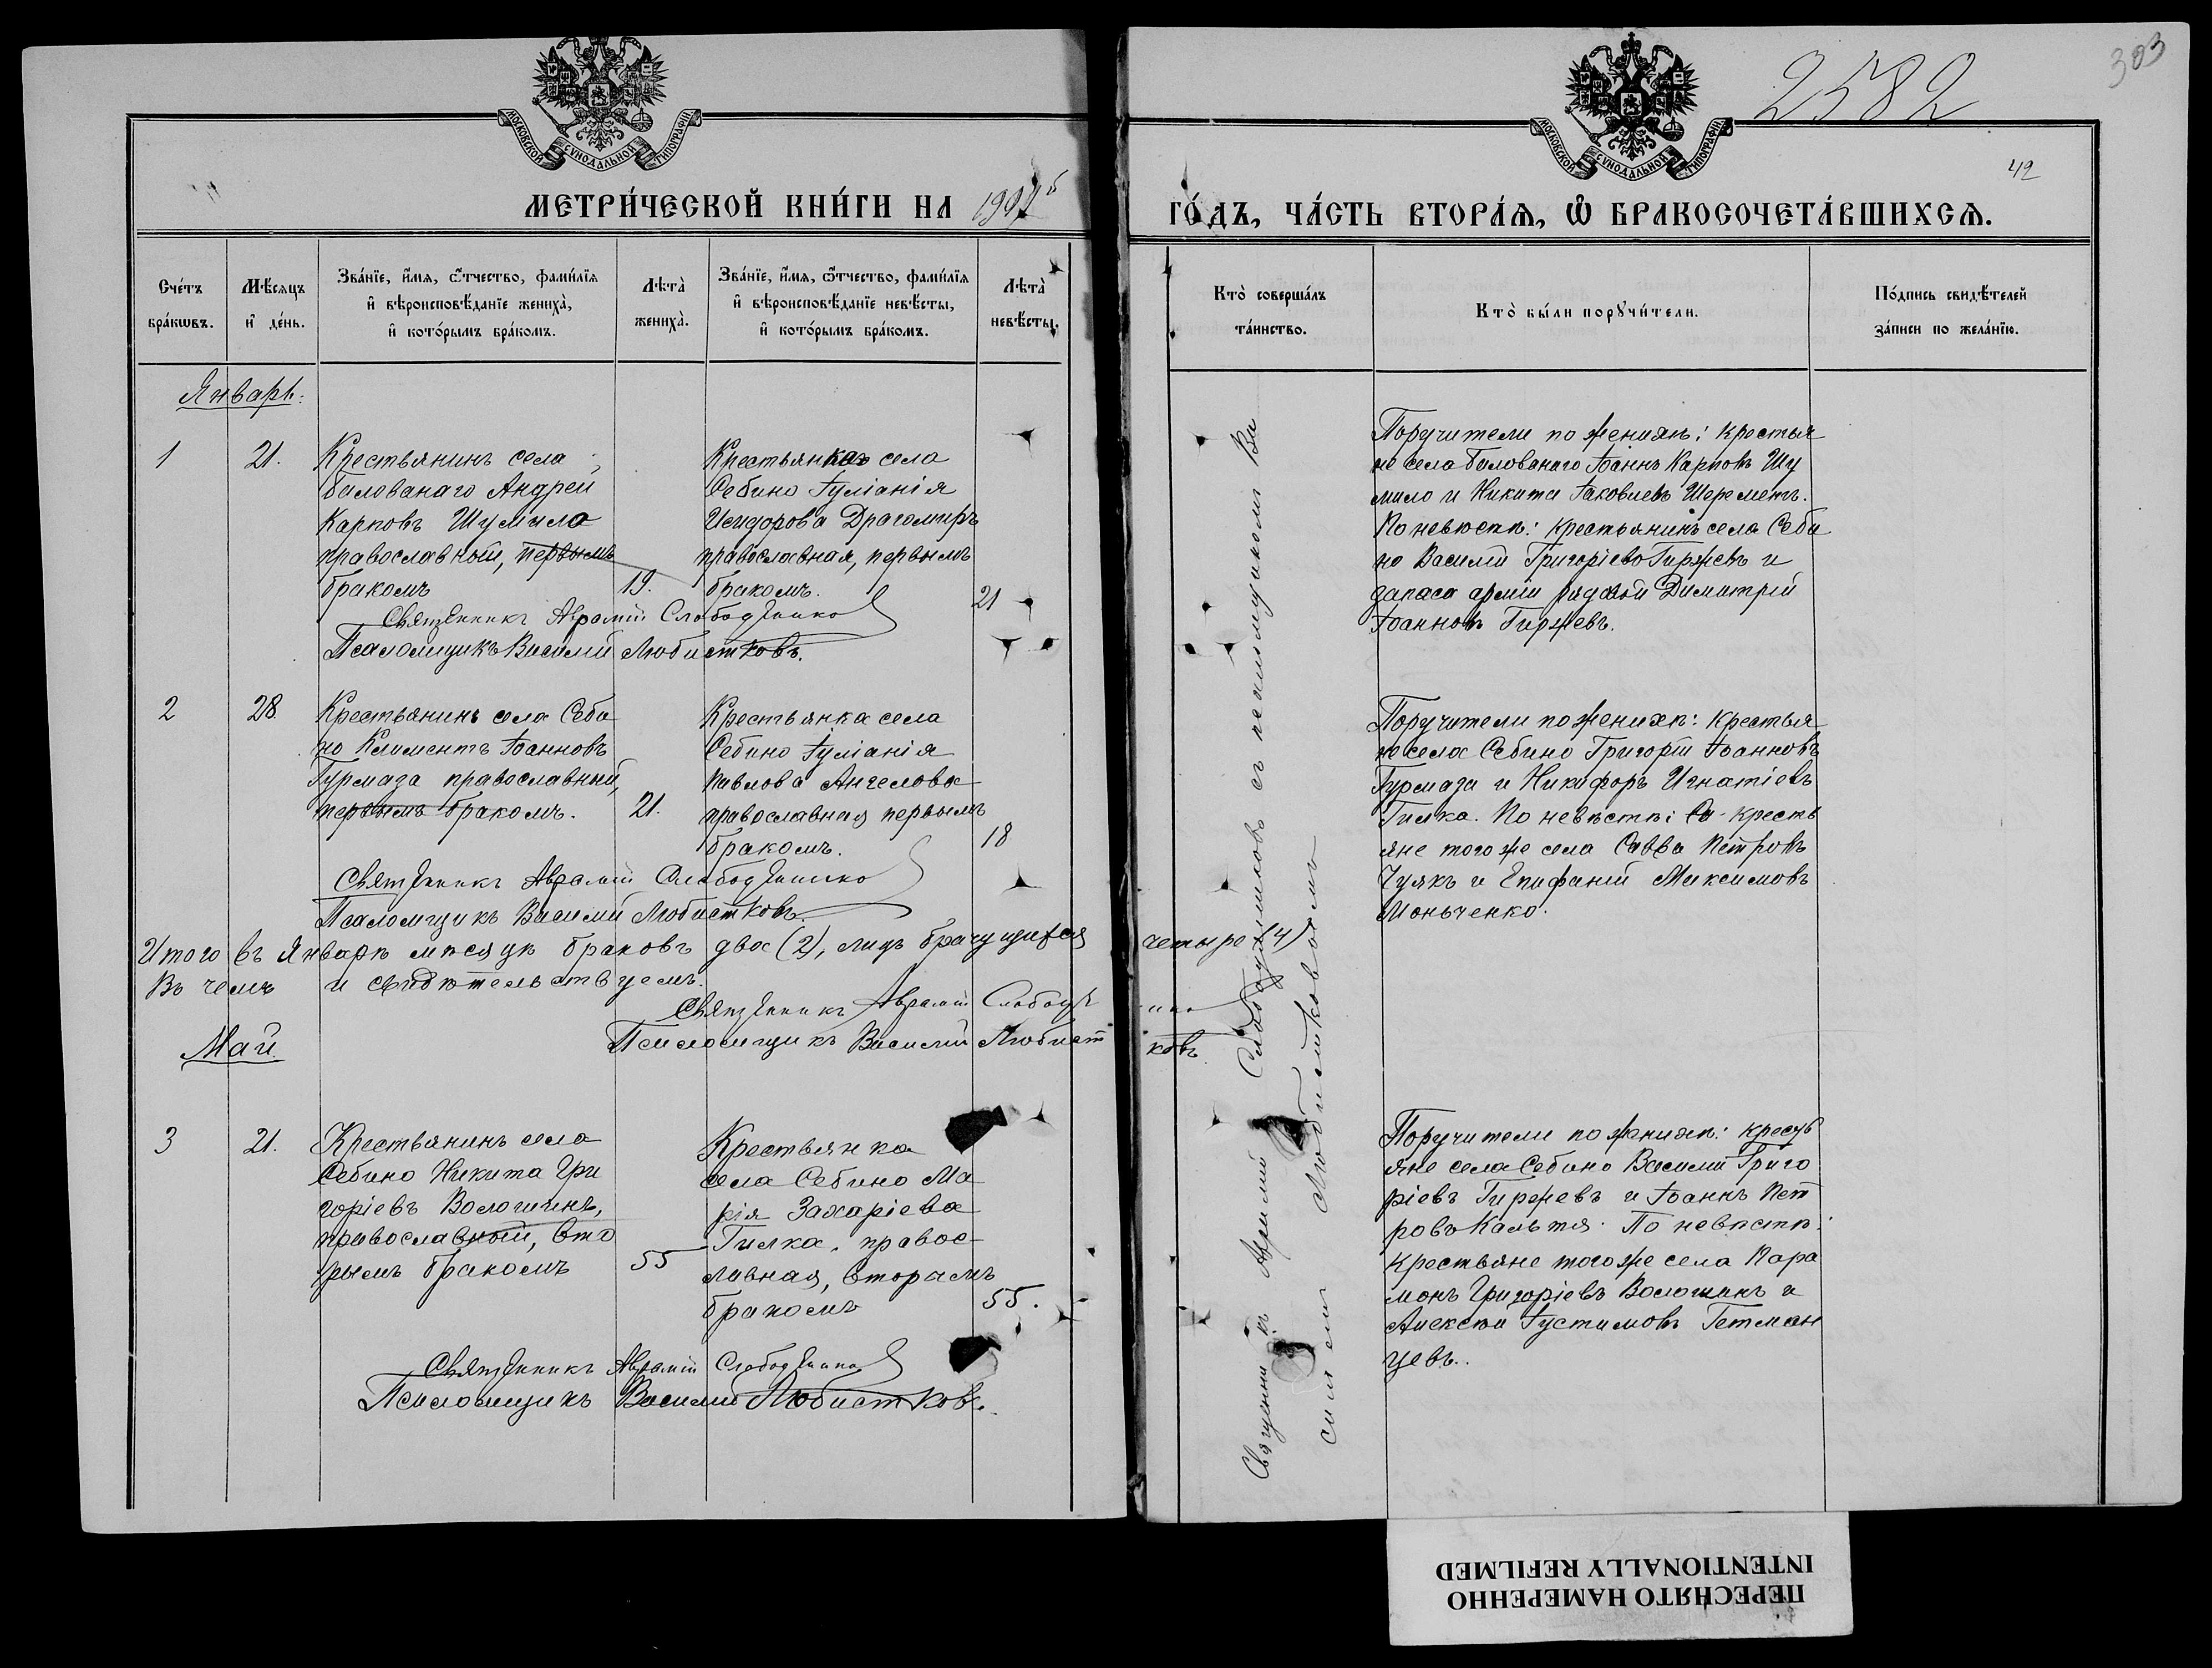 303
2582
42
МОСКОВСКОЙ СѴНОДАЛЬНОЙ ТИПОГРАФІИ
МОСКОВСКОЙ СѴНОДАЛЬНОЙ ТИПОГРАФІИ
МЕТРИ́ЧЕСКОЙ КНИ́ГИ НА
ГО́ДЪ, ЧА́СТЬ ВТОРА́Ѧ, Ѽ БРАКОСОЧЕТА́ВШИХСѦ.
Сче́тъ бра́кѡвъ.
Мѣ́сяцъ и҆ де́нь.
Зва́нїе, и҆́мѧ, ѻ҆́тчество, фами́лїѧ
и҆ вѣроисповѣ́данїе жениха̀,
и҆ кото́рымъ бра́комъ.
Лѣта̀ жениха̀.
Зва́нїе, и҆́мѧ, ѻ҆́тчество, фами́лїѧ
и҆ вѣроисповѣ́данїе невѣ́сты,
и҆ кото́рымъ бра́комъ.
Лѣта̀ невѣ́сты.
Кто̀ соверша́лъ та́инство.
Кто̀ бы́ли порꙋчи́тели.
По́дпись свидѣ́телей за́писи по жела́нїю.
Январь.
1
21.
Крестьянинъ села
Билованаго Андрей
Карповъ Шумило
православный, первымъ
бракомъ
19.
Крестьянка села
Себино Іуліанія
Исидорова Драгомиръ
православная, первымъ
бракомъ.
21
Священникъ Аврамій Слободяник
Псаломщикъ Василій Любистковъ.
Поручители по женихѣ: крестья
не села Билованаго Іоаннъ Карповъ Шу
мило и Никита Іаковлевъ Шереметъ.
По невѣстѣ: крестьянинъ села Себи
но Василій Григоріевъ Гиржевъ и
запаса арміи рядовой Димитрій
Іоанновъ Гиржевъ.
2
28.
Крестьянинъ села Себи
но Климентъ Іоанновъ
Гурмаза православный,
первымъ бракомъ.
21.
Крестьянка села
Себино Іуліанія
Павлова Ангелова
православная первымъ
бракомъ.
18
Священникъ Аврамій Слободяник
Псаломщикъ Василій Любистковъ.
Поручители по женихѣ: крестья
не села Себино Григорій Іоанновъ
Гурмаза и Никифоръ Игнатіевъ
Гилка. По невѣстѣ: кресть
яне того же села Савва Петровъ
Чуякъ и Епифаній Максимовъ
Моньченко.
Итого въ Январѣ мѣсяцѣ браковъ два (2), лицъ брачущихся четыре (4)
Въ чемъ и свидѣтельствуемъ.
Священникъ Аврамій Слободяник
Псаломщикъ Василій Любистковъ
Май
3
21.
Крестьянинъ села
Себино Никита Гри
горіевъ Волошинъ,
православный, вто
рымъ бракомъ
55
Крестьянка
села Себино Ма
рія Захаріева
Гилка, правос-
лавная, вторымъ
бракомъ
55.
Священникъ Аврамій Слободяник
Псаломщикъ Василій Любистковъ.
Поручители по женихѣ: кресть
яне села Себино Василій Григо
ріевъ Гиржевъ и Іоаннъ Пет
ровъ Кальтя. По невѣстѣ:
крестьяне того же села Пара
монъ Григоріевъ Волошинъ и
Алексѣй Іустимовъ Гетман
цевъ.
Священникъ Аврамій Слободяниковъ съ псаломщикомъ Ва
силіемъ Любистковымъ
ПЕРЕСНЯТО НАМЕРЕННО
INTENTIONALLY REFILMED